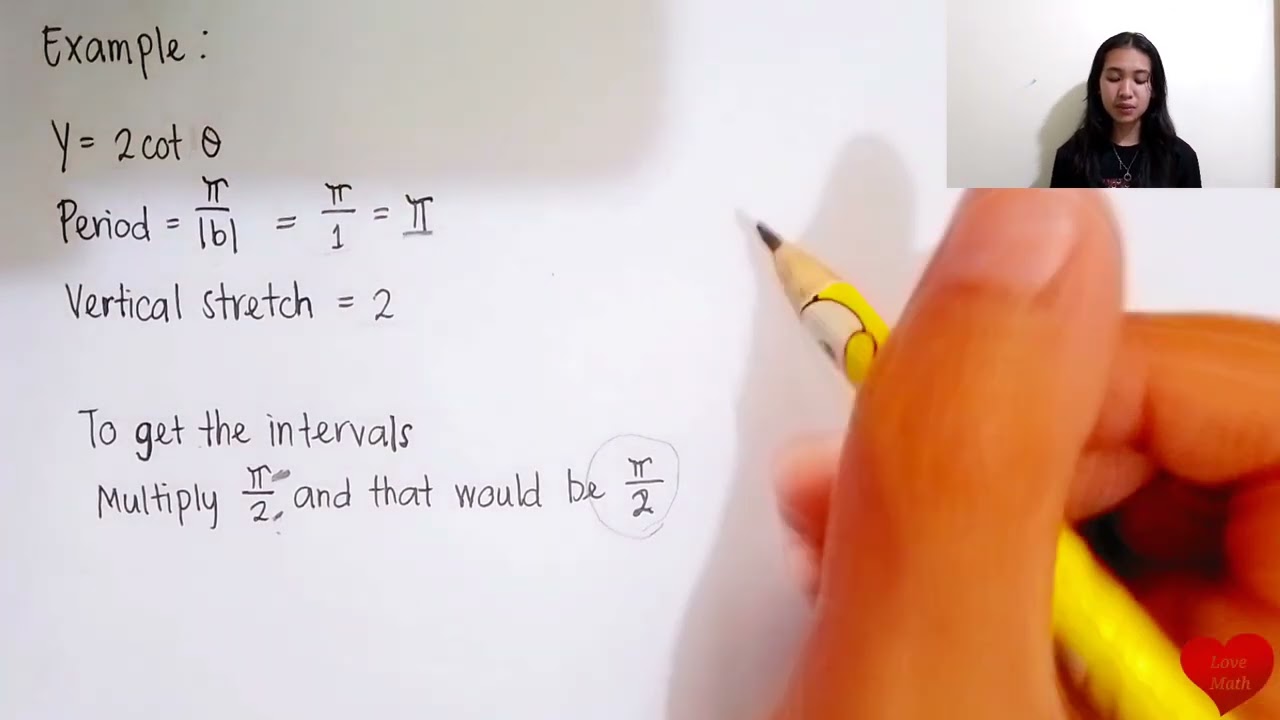 Example :
Y = 2 cot θ
Period = π/|b| = π/1 = π
Vertical stretch = 2
To get the intervals
Multiply π/2 and that would be π/2
Love
Math